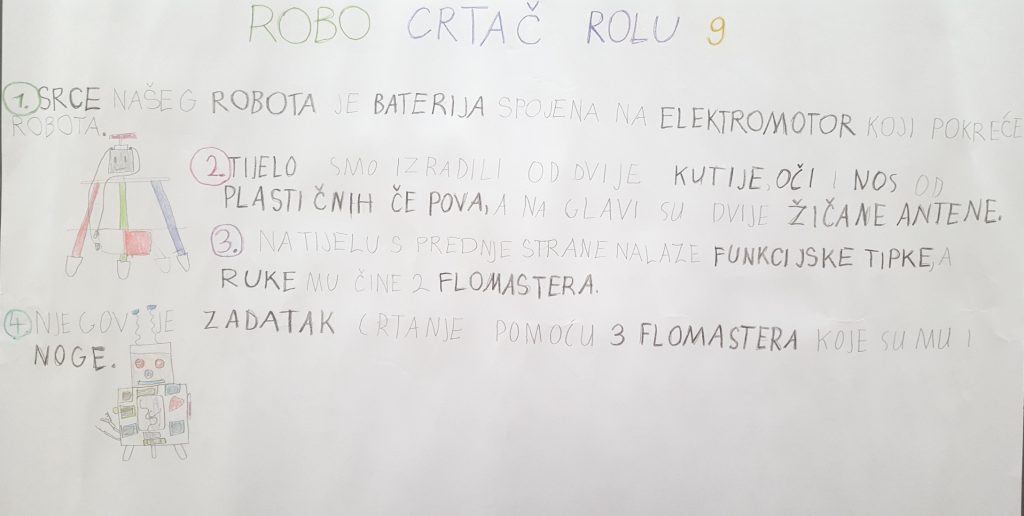 ROBO CRTAČ ROLU 9
1. SRCE NAŠEG ROBOTA JE BATERIJA SPOJENA NA ELEKTROMOTOR KOJI POKREĆE
ROBOTA.
2. TIJELO SMO IZRADILI OD DVIJE KUTIJE, OČI I NOS OD
PLASTIČNIH ČEPOVA, A NA GLAVI SU DVIJE ŽIČANE ANTENE.
3. NA TIJELU S PREDNJE STRANE NALAZE FUNKCIJSKE TIPKE, A
RUKE MU ČINE 2 FLOMASTERA.
4. NJEGOV JE ZADATAK CRTANJE POMOĆU 3 FLOMASTERA KOJE SU MU I
NOGE.